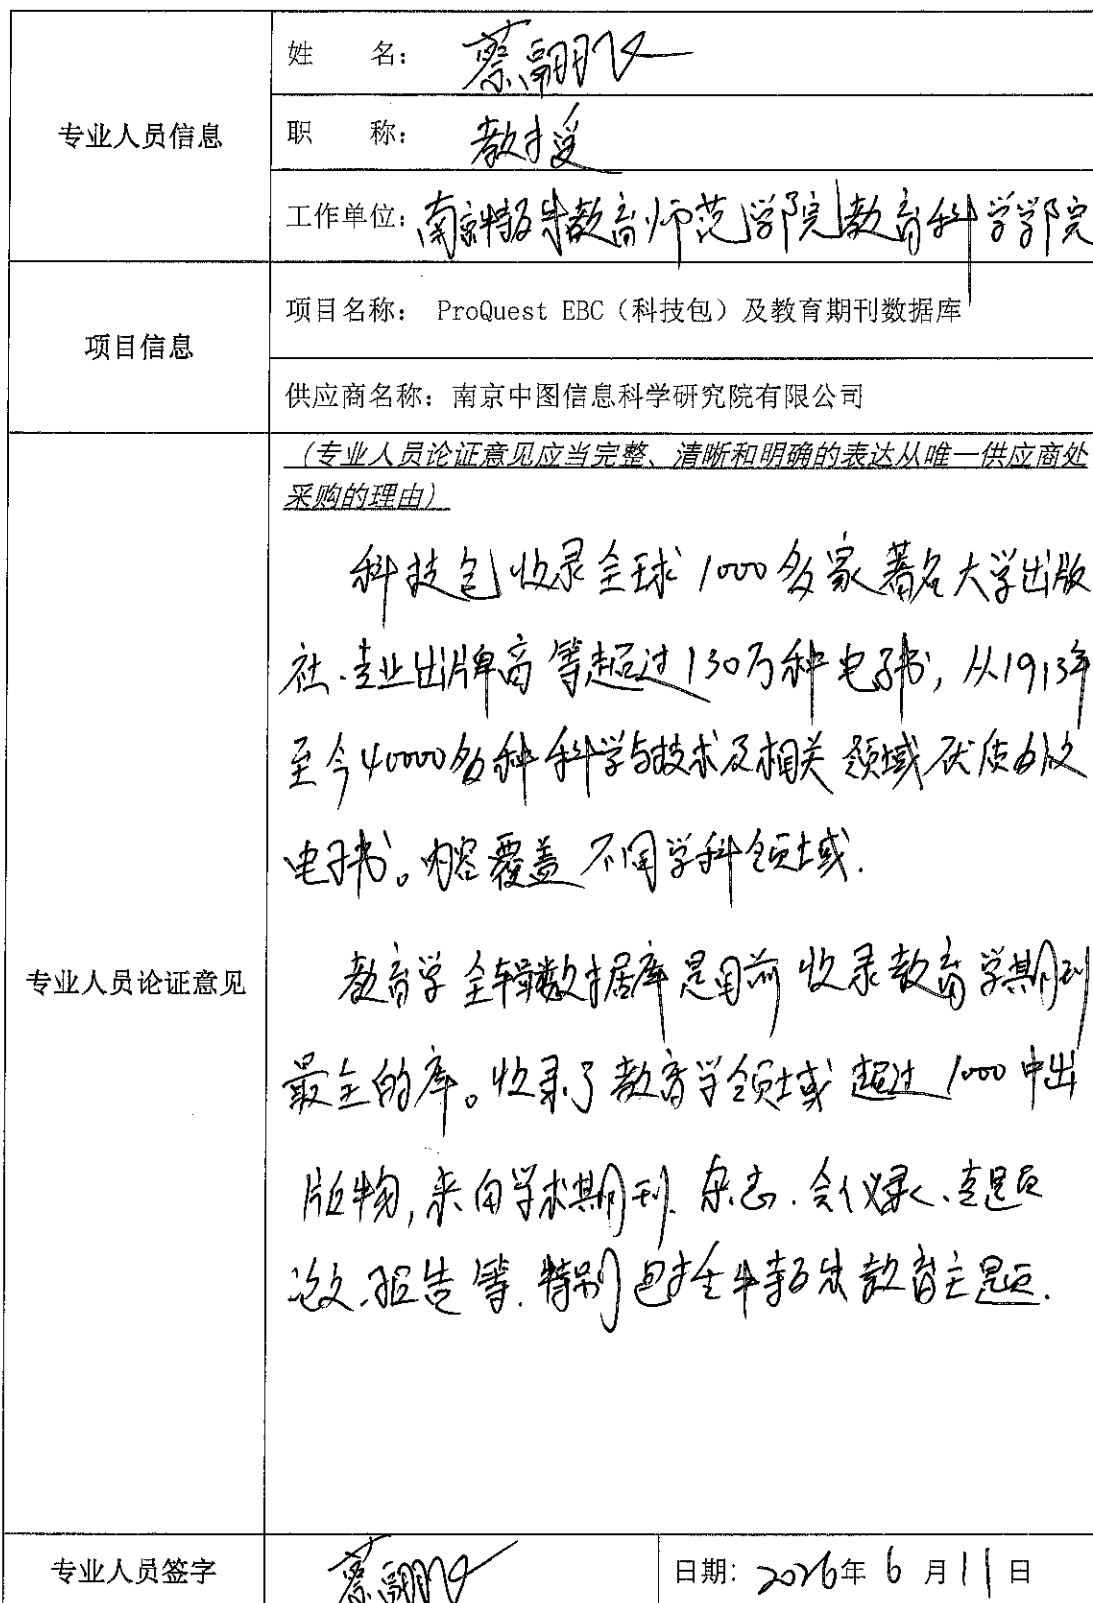 姓 名：蔡翮飞
专业人员信息
职 称：教授
工作单位：南京特殊教育师范学院教育科学学院
项目名称： ProQuest EBC（科技包）及教育期刊数据库
项目信息
供应商名称：南京中图信息科学研究院有限公司
（专业人员论证意见应当完整、清晰和明确的表达从唯一供应商处
采购的理由）
科技包收录全球1000多家著名大学出版
社.专业出牌商等超过130万种电子书，从1913年
至今40000多种科学与技术及相关领域优质的
电子书。内容覆盖不同学科领域.
专业人员论证意见
教育学全辑数据库是目前收录教育学期刊
最全的库。收录了教育学领域超过1000中出
版物，来自学术期刊.杂志.会议录、专题
论文.报告等.特别包括特殊教育主题.
专业人员签字
蔡翮飞
日期：2026年6月11日